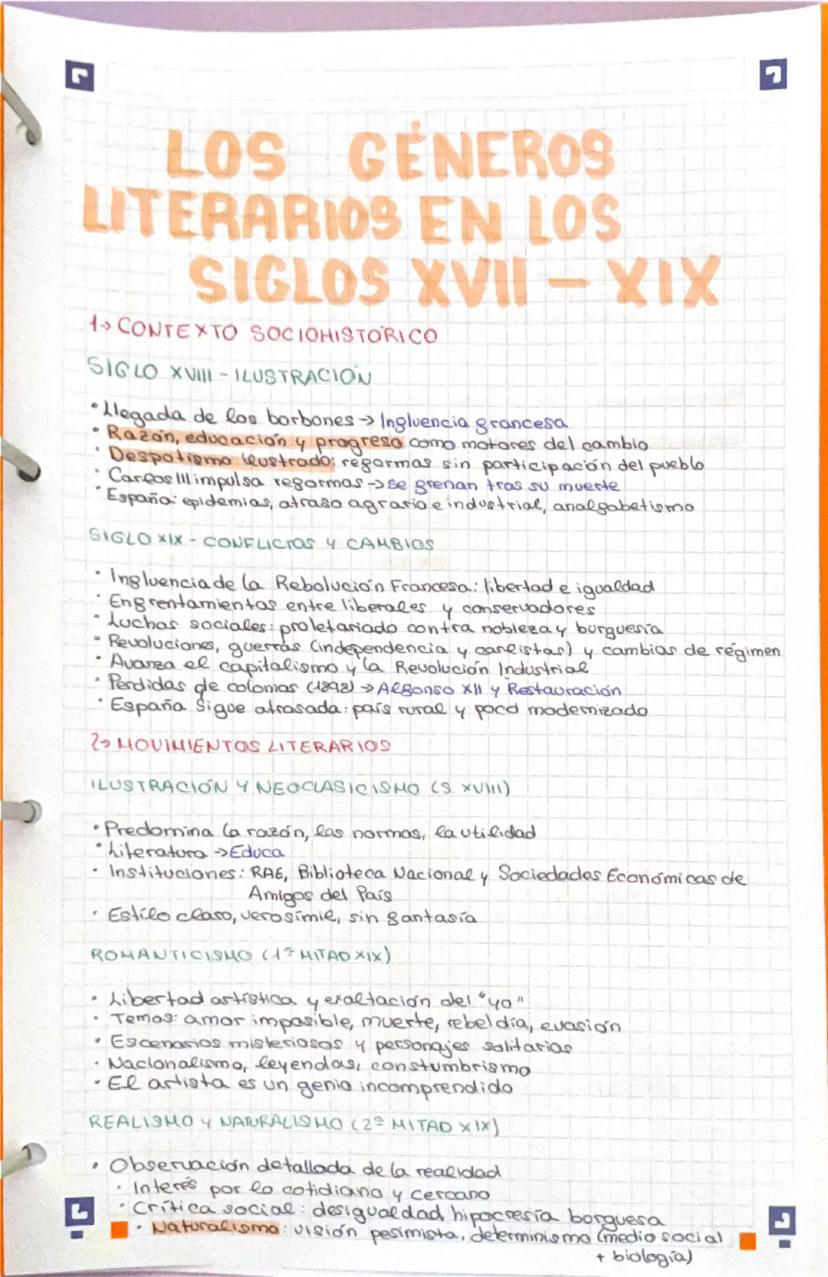 LOS GÉNEROS
LITERARIOS EN LOS
SIGLOS XVII - XIX
1→ CONTEXTO SOCIOHISTÓRICO
SIGLO XVIII - ILUSTRACIÓN
• Llegada de los borbones → Influencia francesa
• Razón, educación y progreso como motores del cambio
• Despotismo ilustrado: reformas sin participación del pueblo
• Carlos III impulsa reformas → se frenan tras su muerte
• España: epidemias, atraso agrario e industrial, analfabetismo
SIGLO XIX - CONFLICTOS Y CAMBIOS
• Influencia de la Rebolución Francesa: libertad e igualdad
• Enfrentamientos entre liberales y conservadores
• Luchas sociales: proletariado contra nobleza y burguesía
• Revoluciones, guerras (independencia y carlistas) y cambios de régimen
• Avanza el capitalismo y la Revolución Industrial
• Pérdidas de colonias (1898) → Alfonso XII y Restauración
• España Sigue atrasada: país rural y poco modernizado
2→ MOVIMIENTOS LITERARIOS
ILUSTRACIÓN Y NEOCLASICISMO (S. XVIII)
• Predomina la razón, las normas, la utilidad
• Literatura → Educa
• Instituciones: RAE, Biblioteca Nacional y Sociedades Económicas de
Amigos del País
• Estilo claso, verosímil, sin fantasía
ROMANTICISMO (1ª MITAD XIX)
• Libertad artística y exaltación del "yo"
• Temas: amor imposible, muerte, rebeldía, evasión
• Escenarios misteriosos y personajes solitarios
• Nacionalismo, leyendas, constumbrismo
• El artista es un genio incomprendido
REALISMO Y NATURALISMO (2ª MITAD XIX)
• Observación detallada de la realidad
• Interés por lo cotidiano y cercano
• Crítica social: desigualdad, hipocresía borguesa
• Naturalismo: visión pesimista, determinismo (medio social
+ biología)